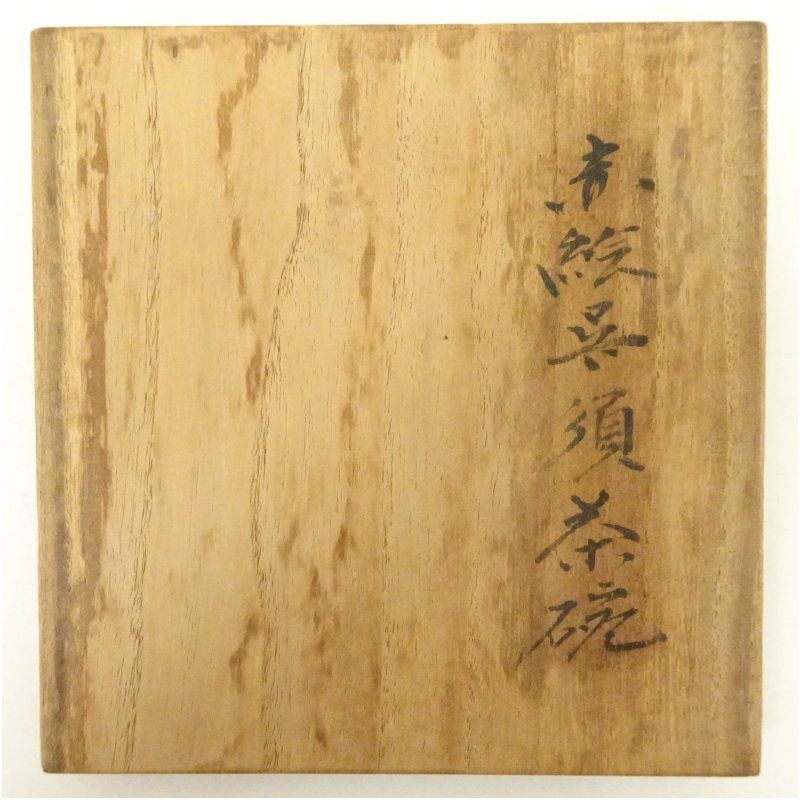 赤絵呉須茶碗